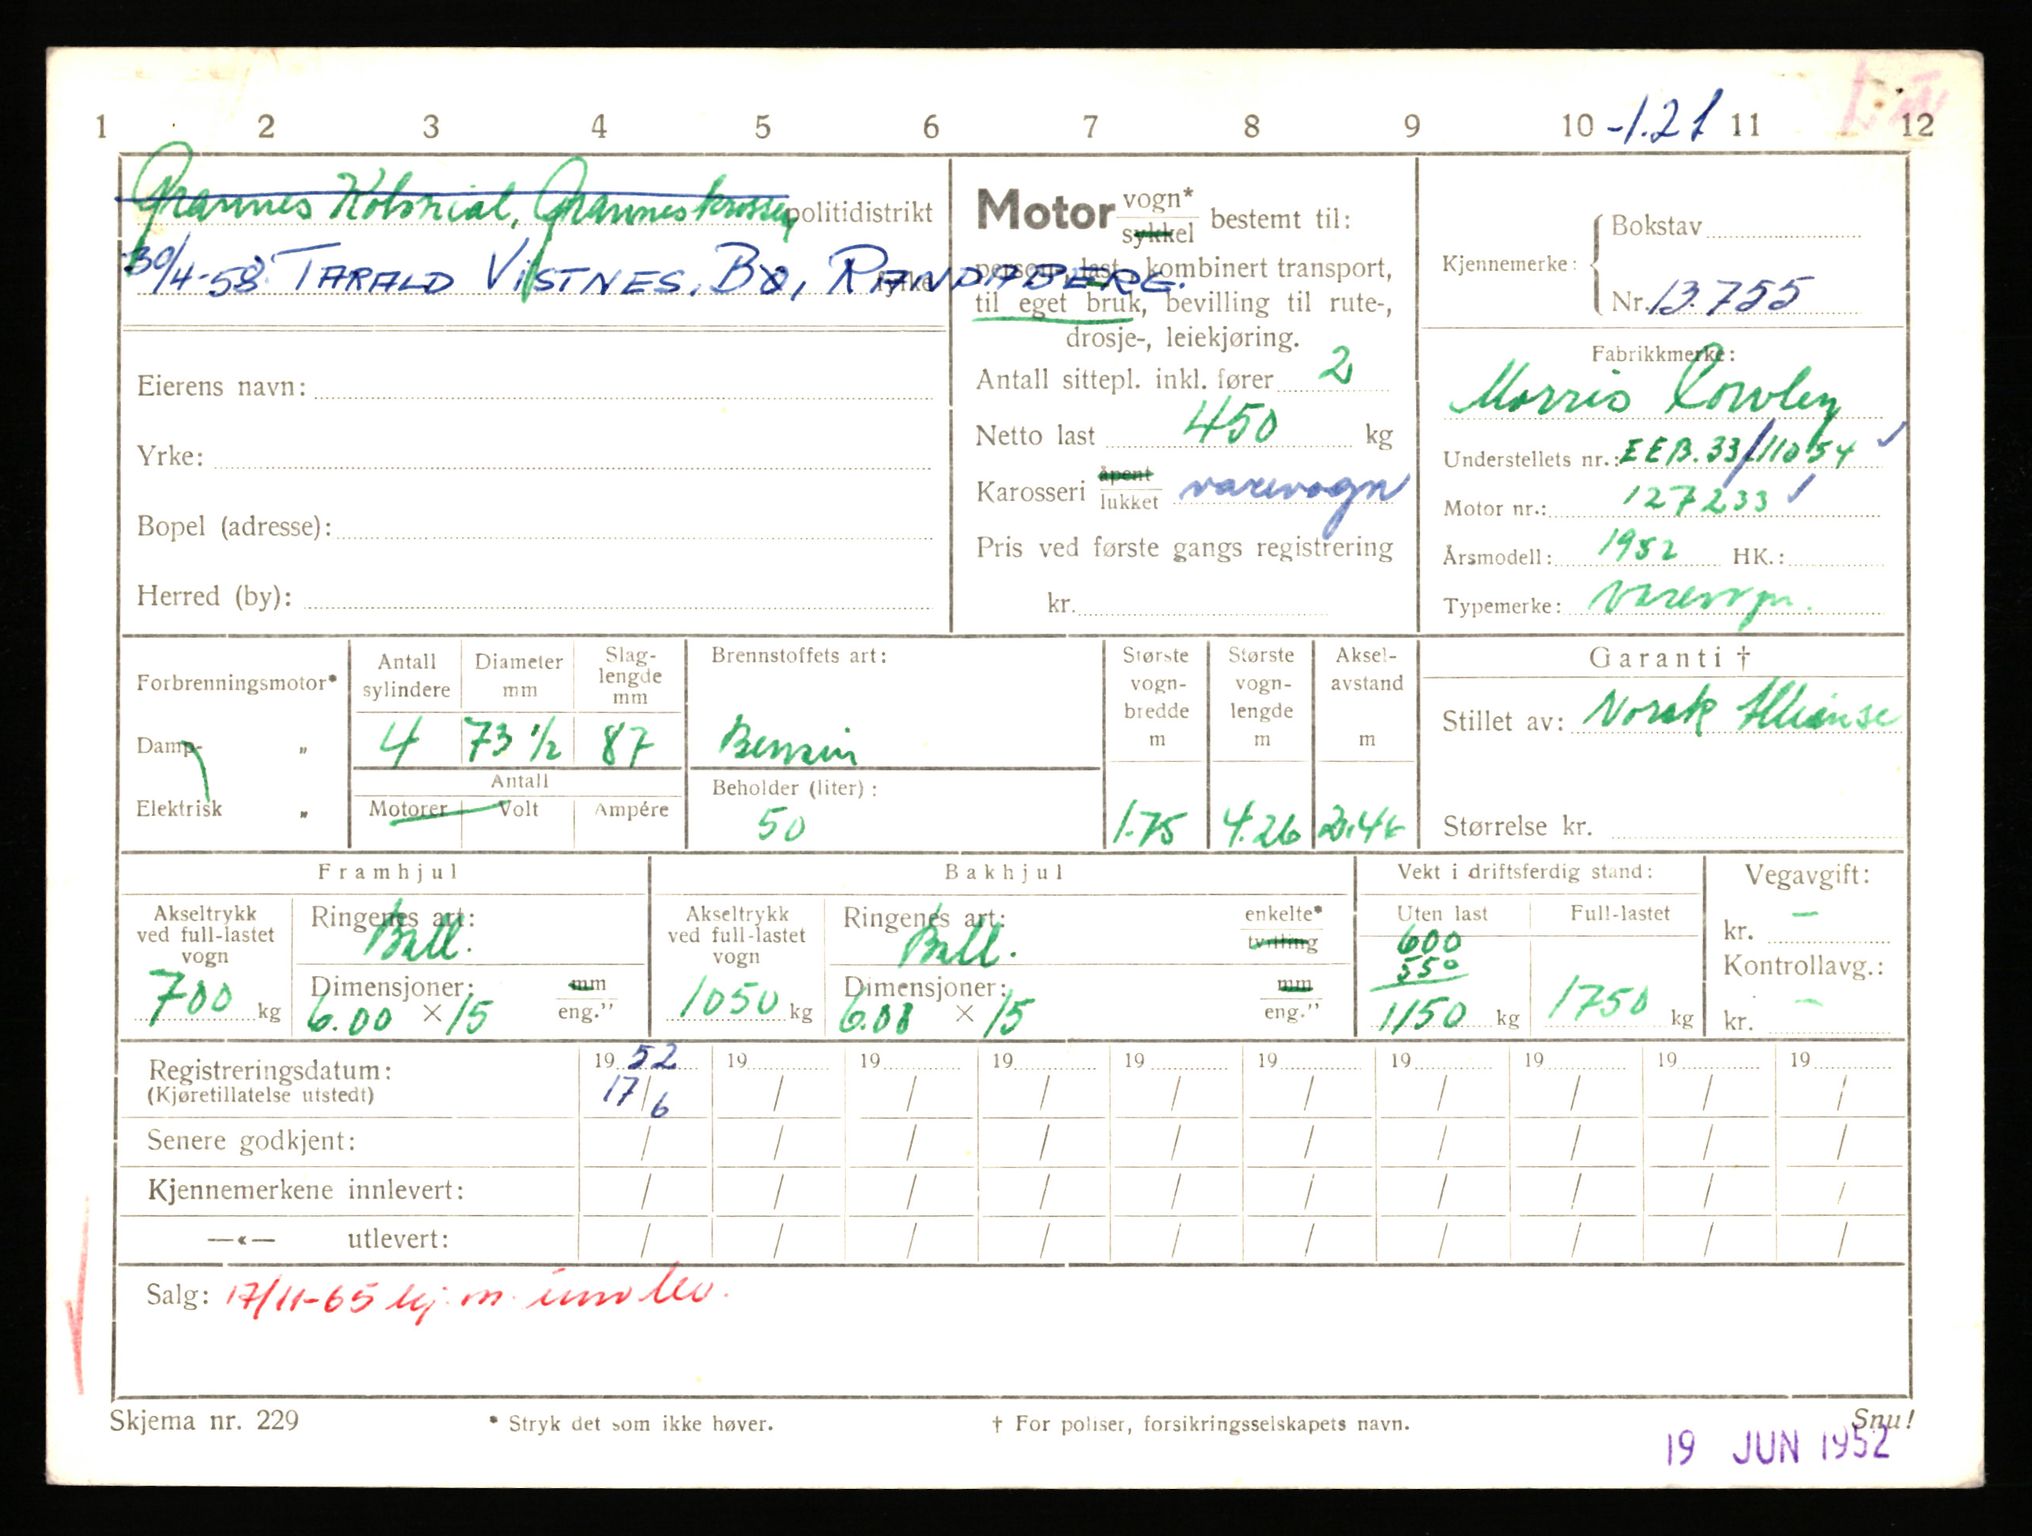 1 2 3 4 5 6 7 8 9 10 -1.21 11 12
Grannes Kolonial, Granneskrossen politidistrikt
30/4-58. TARALD VISTNES. BØ, RANDABERG.
Eierens navn:
Yrke:
Bopel (adresse):
Herred (by):
Motor vogn* sykkel bestemt til:
person, last, kombinert transport,
til eget bruk, bevilling til rute-,
drosje-, leiekjøring.
Antall sittepl. inkl. fører 2
Netto last 450 kg
Karosseri åpent lukket varevogn
Pris ved første gangs registrering
kr.
Kjennemerke: Bokstav
Nr. 13.755
Fabrikkmerke:
Morris Cowley
Understellets nr.: EEB.33/11054
Motor nr.: 127233
Årsmodell: 1952 HK.:
Typemerke: Varevogn.
Forbrenningsmotor*
Damp- „
Elektrisk „
Antall sylindere
4
Diameter mm
73 1/2
Slag-lengde mm
87
Antall
Motorer Volt Ampére
Brennstoffets art:
Bensin
Beholder (liter):
50
Største vogn-bredde m
1.75
Største vogn-lengde m
4.26
Aksel-avstand m
Garanti †
Stillet av: Norsk Allianse
Størrelse kr.
Framhjul
Akseltrykk ved full-lastet vogn
700 kg
Ringenes art:
Ball.
Dimensjoner: mm eng."
6.00 × 15
Bakhjul
Akseltrykk ved full-lastet vogn
1050 kg
Ringenes art: enkelte* tvilling
Ball.
Dimensjoner: mm eng."
6.00 × 15
Vekt i driftsferdig stand:
Uten last
600
550
1150 kg
Full-lastet
1750 kg
Vegavgift:
kr. –
Kontrollavg.:
kr. –
Registreringsdatum: 19 52 19 19 19 19 19 19 19 19 19
(Kjøretillatelse utstedt) 17/6 / / / / / / / / /
Senere godkjent: / / / / / / / / / /
Kjennemerkene innlevert: / / / / / / / / / /
—«— utlevert: / / / / / / / / / /
Salg: 17/11-65 kj. m. innlev.
Skjema nr. 229 * Stryk det som ikke høver. † For poliser, forsikringsselskapets navn. Snu!
19 JUN 1952